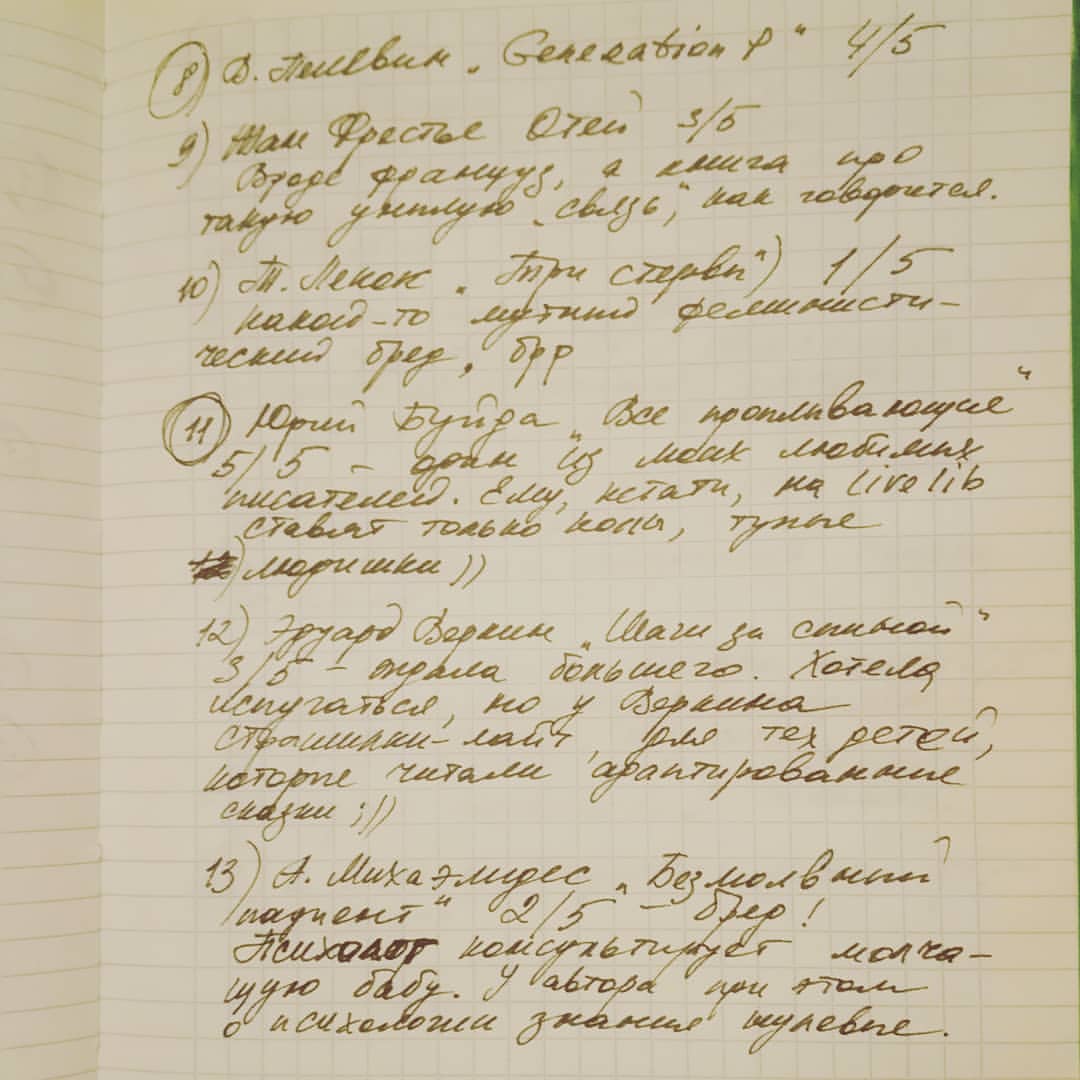 8) В. Пелевин „Generation P" 4/5
9) Жан Фрестье Отей 3/5
Вроде француз, а книга про
такую унылую „связь", как говорится.
10) Т. Ленок „Три стервы") 1/5
какой-то мутный феминисти-
ческий бред, брр
11) Юрий Буйда „Все проплывающие"
5/5 - один из моих любимых
писателей. Ему, кстати, на livelib
ставят только колы, тупые
людишки))
12) Эдуард Веркин „Шаги за спиной"
3/5 - ждала большего. Хотела
испугаться, но у Веркина
страшилки-лайт, для тех детей,
которые читали адаптированные
сказки ;))
13) А. Михаэлидес „Безмолвный
пациент" 2/5 - бред!
Психолог консультирует молча-
щую бабу. У автора при этом
о психологии знания нулевые.